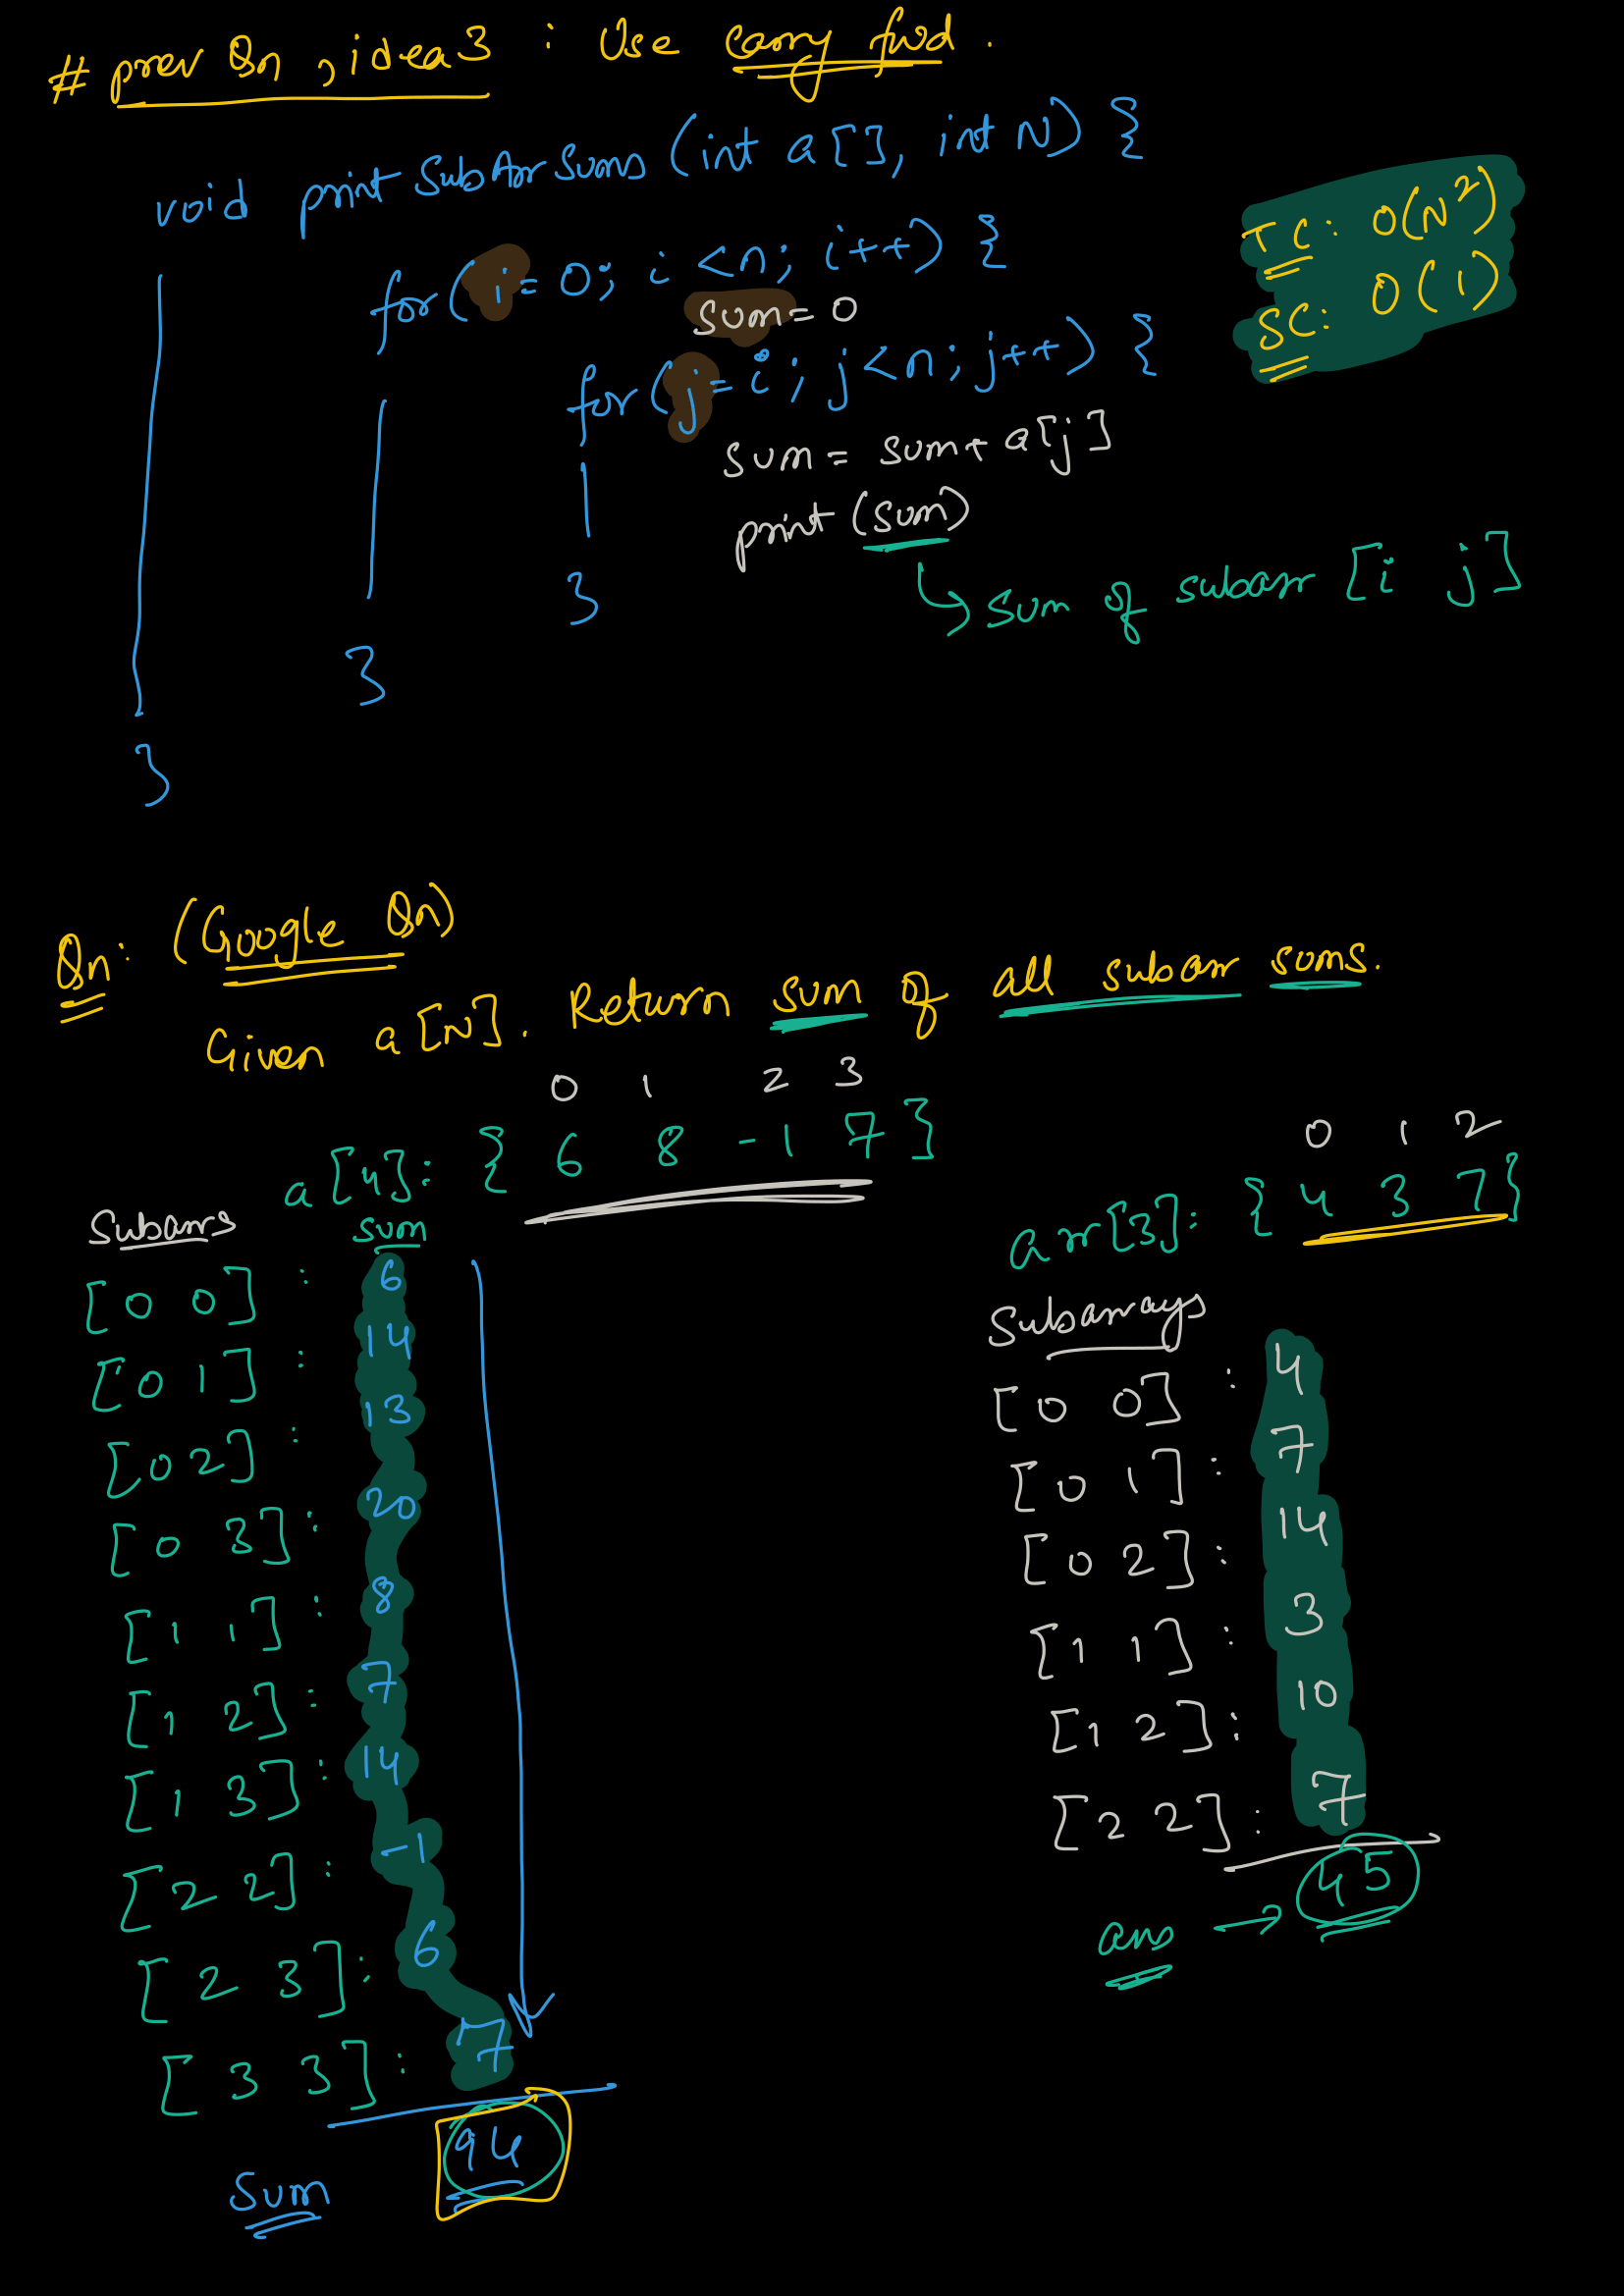 # prev Qn , idea3 : Use carry fwd .
void print SubArr Sums (int a [], int N) {
TC: O(N²)
for( i= 0; i <n; i++) {
SC: O(1)
sum= 0
for (j= i ; j<n; j++) {
sum = sum+ a[j]
print (sum)
↳ sum of subarr [i j]
}
}
}
Qn: (Google Qn)
Given a[N]. Return sum of all subarr sums.
0 1 2 3
a[4]: { 6 8 -1 7 }
0 1 2
arr[3]: { 4 3 7 }
Subarrs sum
[0 0] : 6
[0 1] : 14
[0 2] : 13
[0 3] : 20
[1 1] : 8
[1 2] : 7
[1 3] : 14
[2 2] : -1
[2 3] : 6
[3 3] : 7
Sum 94
Subarrays
[0 0] : 4
[0 1] : 7
[0 2] : 14
[1 1] : 3
[1 2] : 10
[2 2] : 7
ans → 45